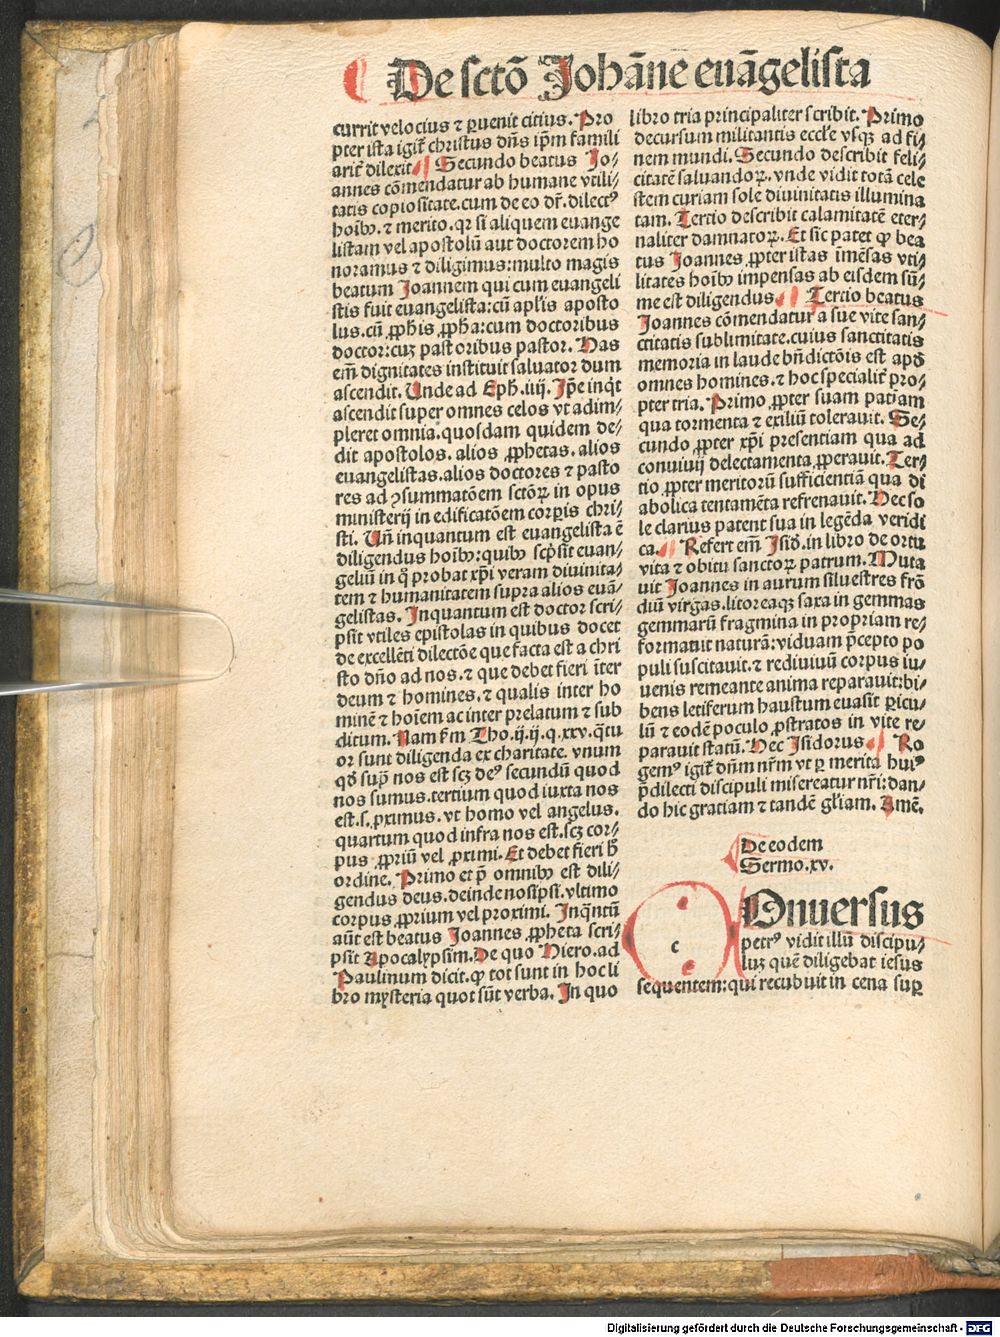 De sctō Johāne euāgelista
currit velocius ⁊ ꝑuenit citius. Pro
pter ista igit̃ christus dn̄s ip̄m famili
arit̃ dilexit. Secundo beatus Jo⸗
annes cōmendatur ab humane vtili⸗
tatis copiositate. cum de eo dr̄. dilectꝰ
hoībꝫ. ⁊ merito. qꝛ si aliquem euange
listam vel apostolū aut doctorem ho
noramus ⁊ diligimus: multo magis
beatum Joannem qui cum euangeli
stis fuit euangelista: cū apl̄is aposto
lus. cū ꝓphis ꝓph̄a: cum doctoribus
doctor: cuꝫ pastoribus pastor. Has
em̄ dignitates instituit saluator dum
ascendit. Unde ad Eph. iiij. Jp̄e inq̇t
ascendit super omnes celos vt adim⸗
pleret omnia. quosdam quidem de⸗
dit apostolos. alios ꝓphetas. alios
euangelistas. alios doctores ⁊ pasto
res ad ꝯsummatōem sctōꝝ in opus
ministerij in edificatōem corpis chri⸗
sti. Un̄ inquantum est euangelista ē
diligendus hoībꝫ: quibꝫ scp̄sit euan⸗
geliū in q̊ probat xp̄i veram diuinita⸗
tem ⁊ humanitatem supra alios euā⸗
gelistas. Jnquantum est doctor scri⸗
psit vtiles epistolas in quibus docet
de excellēti dilectōe que facta est a chri
sto dn̄o ad nos. ⁊ que debet fieri īter
deum ⁊ homines. ⁊ qualis inter ho
minē ⁊ hoīem ac inter prelatum ⁊ sub
ditum. Nam ẜm Tho. ij. ij. q. xxv. q̇tu
or sunt diligenda ex charitate. vnum
qd̓ supͣ nos est scꝫ deꝰ secundū quod
nos sumus. tertium quod iuxta nos
est. s. ꝓximus. vt homo vel angelus.
quartum quod infra nos est. scꝫ cor⸗
pus ꝓpriū vel ꝓximi. Et debet fieri h̓
ordine. Primo et p̄ omnibꝫ est dili⸗
gendus deus. deinde nosipsi. vltimo
corpus ꝓprium vel proximi. Jnq̄ntū
aūt est beatus Joannes ꝓpheta scri⸗
psit Apocalypsim. De quo Hiero. ad
Paulinum dicit. ꝙ tot sunt in hoc li
bro mysteria quot sūt verba. Jn quo
libro tria principaliter scribit. Primo
decursum militantis eccl̄e vsqꝫ ad fi⸗
nem mundi. Secundo describit feli⸗
citatē saluandoꝝ. vnde vidit totā cele
stem curiam sole diuinitatis illumina
tam. Tertio describit calamitatē eter⸗
naliter damnatoꝝ. Et sic patet ꝙ bea
tus Joannes ꝓpter istas īmēsas vti⸗
litates hoībꝫ impensas ab eisdem sū⸗
me est diligendus. Tercio beatus
Joannes cōmendatur a sue vite san⸗
ctitatis sublimitate. cuius sanctitatis
memoria in laude bn̄dictōis est apd̓
omnes homines. ⁊ hoc specialit̃ pro⸗
pter tria. Primo ꝓpter suam patiam
qua tormenta ⁊ exiliū tolerauit. Se⸗
cundo ꝓpter xp̄i presentiam qua ad
conuiuij delectamenta ꝓperauit. Ter⸗
tio ꝓpter meritorū sufficientiā qua di
abolica tentamēta refrenauit. Hec so
le clarius patent sua in legēda veridi
ca. Refert em̄ Jsid̓. in libro de ortu
vita ⁊ obitu sanctoꝝ patrum. Muta
uit Joannes in aurum siluestres frō
diū virgas. litoreaqꝫ saxa in gemmas
gemmarū fragmina in propriam re⸗
formauit naturā: viduam p̄cepto po
puli suscitauit. ⁊ rediuiuū corpus iu⸗
uenis remeante anima reparauit: bi⸗
bens letiferum haustum euasit ꝑicu⸗
lū ⁊ eodē poculo ꝓstratos in vite re⸗
parauit statū. Hec Jsidorus. Ro
gemꝰ igit̃ dn̄m nr̄m vt ꝑ merita huiꝰ
p̄dilecti discipuli misereatur nr̄i: dan⸗
do hic gratiam ⁊ tandē gl̄iam. Amē.
De eodem
Sermo. xv.
c
Onuersus
petrꝰ vidit illū discipu⸗
luꝫ quē diligebat iesus
sequentem: qui recubuit in cena suꝑ
Digitalisierung gefördert durch die Deutsche Forschungsgemeinschaft - DFG